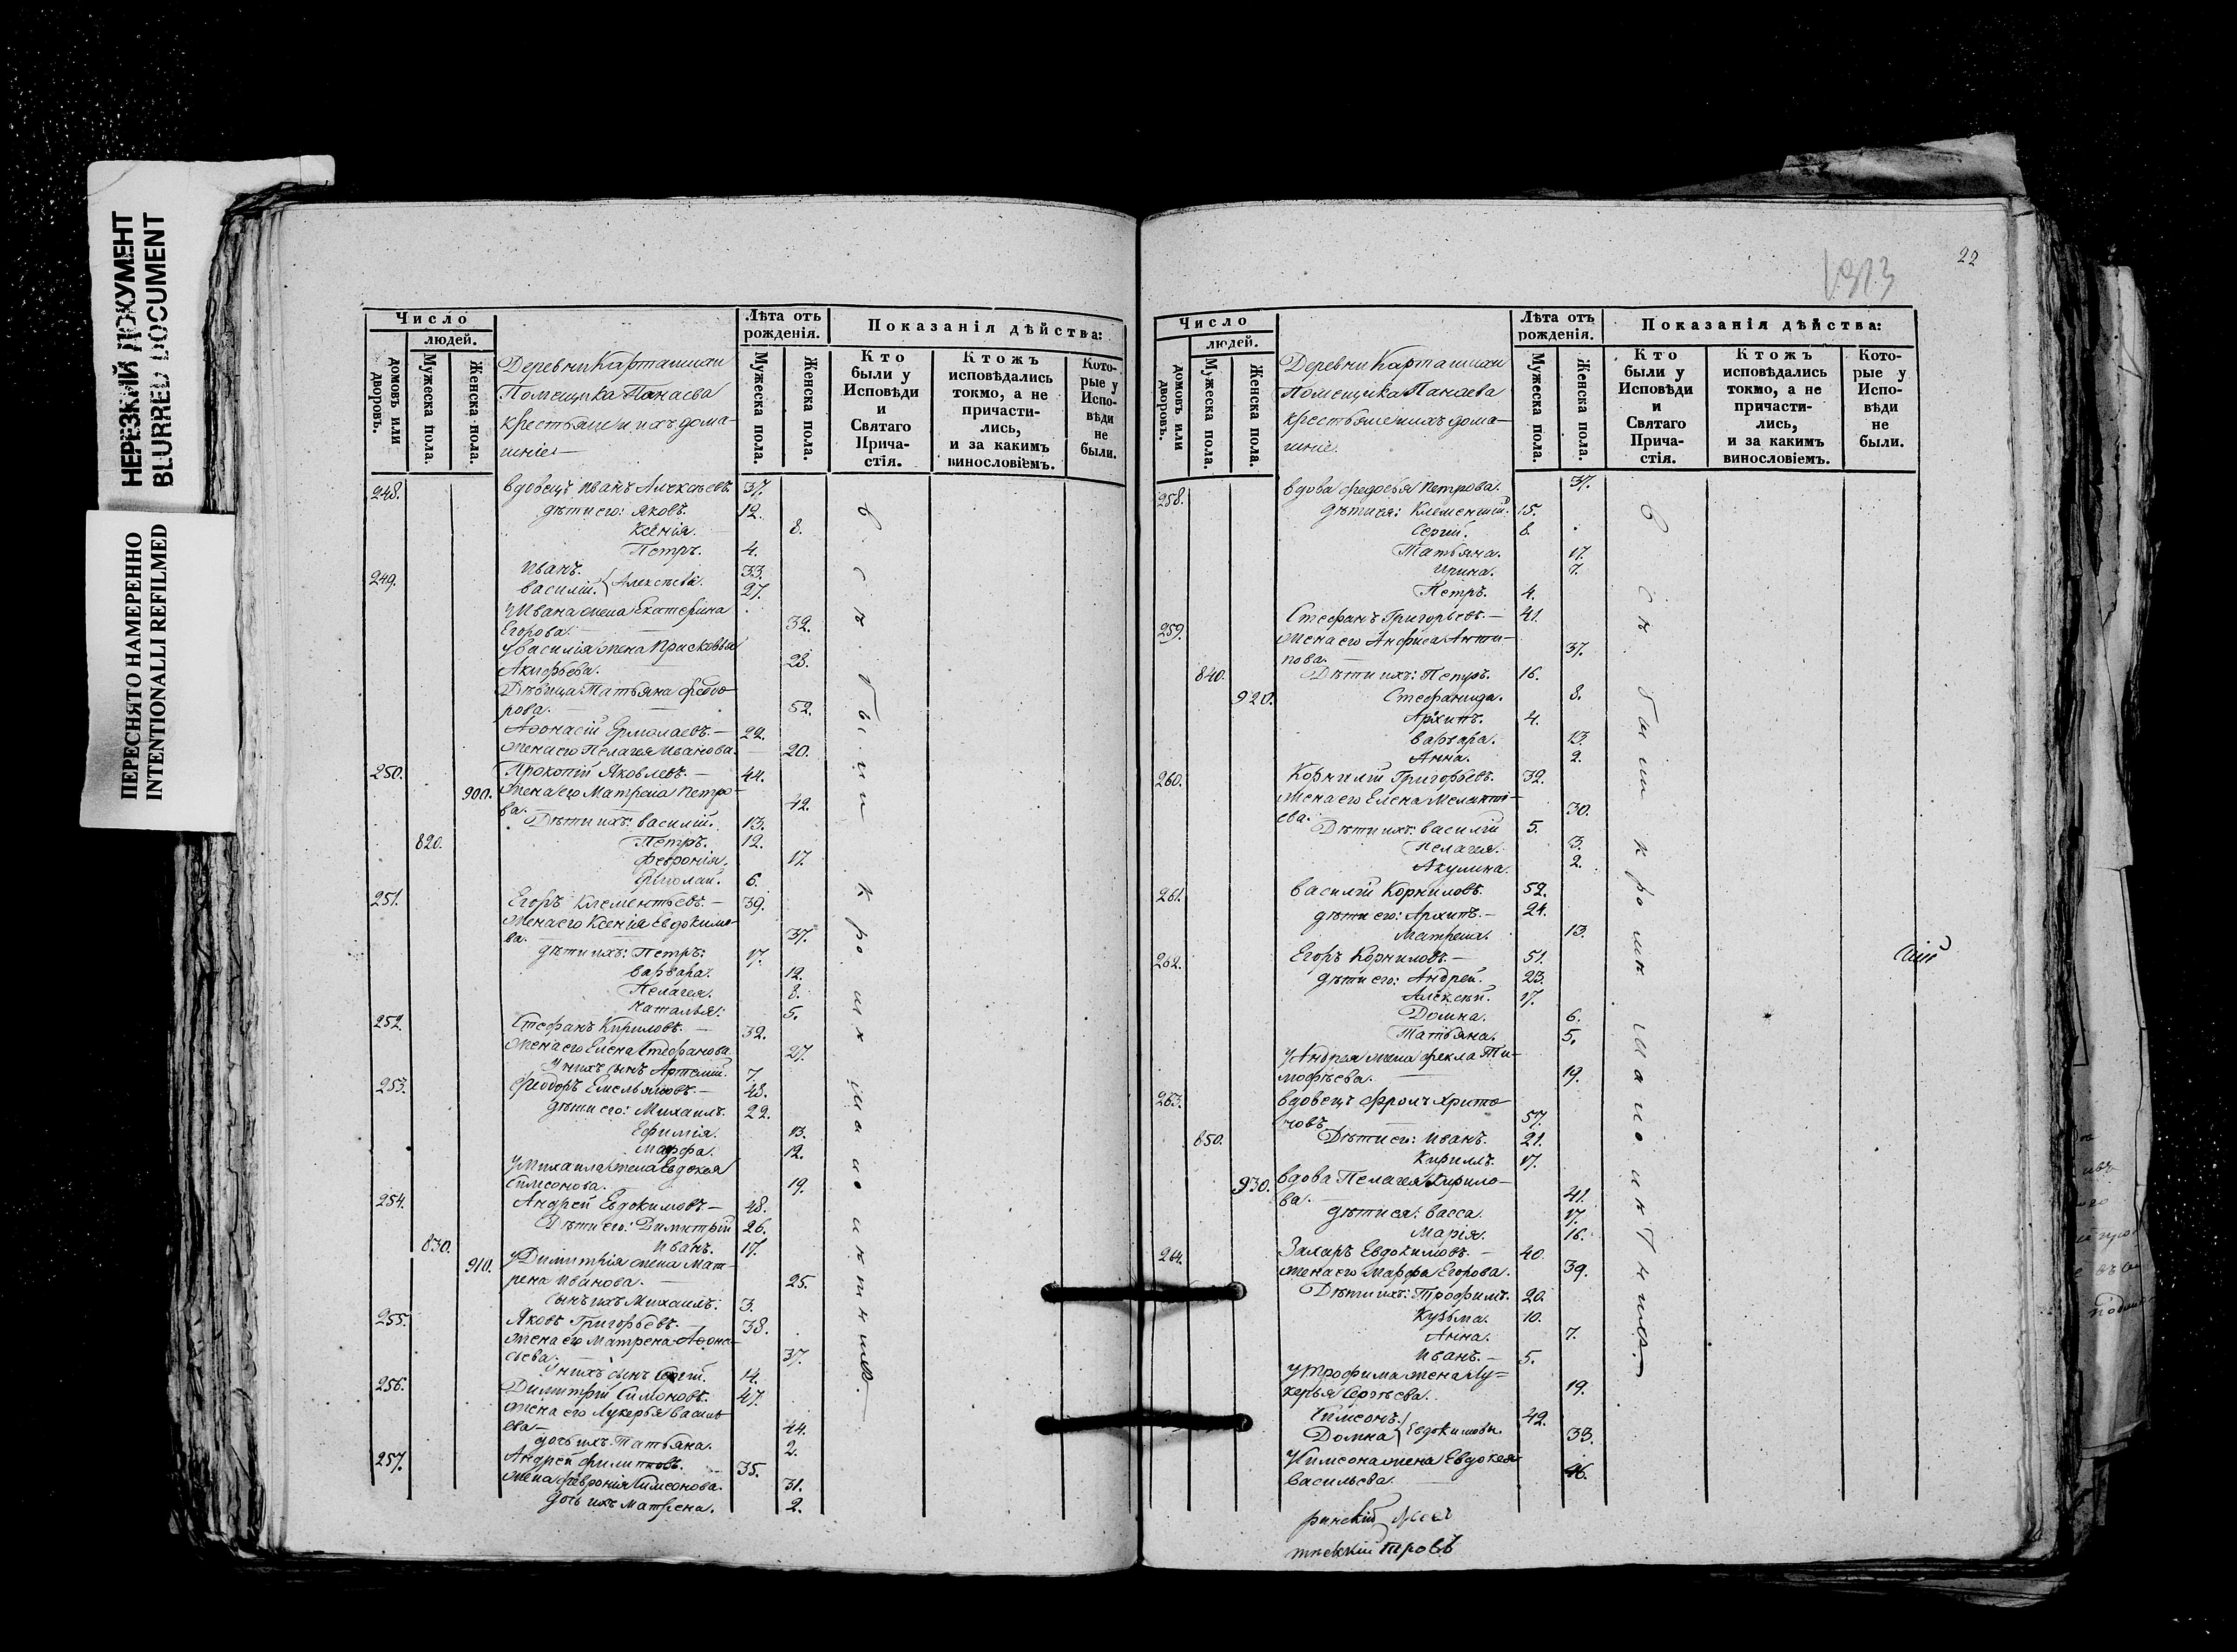 НЕРЕЗКИЙ ДОКУМЕНТ
BLURRED DOCUMENT
ПЕРЕСНЯТО НАМЕРЕННО
INTENTIONALLI REFILMED
Число
людей.
домовъ или дворовъ.
Мужеска пола.
Женска пола.
Деревни Карташихи
Помещика Панаева
крестьяне и ихъ дома-
шніе
Лѣта отъ рожденія.
Мужеска пола.
Женска пола.
Показанія дѣйства:
Кто были у Исповѣди и Святаго Прича-стія.
Ктожъ исповѣдались токмо, а не причасти-лись, и за какимъ винословіемъ.
Кото-рые у Испо-вѣди не были.
248. вдовецъ Иванъ Алексѣевъ. 37.
дѣти его: Яковъ. 12.
Ксенія. 8.
Петръ. 4.
249. Иванъ. 33.
Василій. Алексѣевы. 27.
у Ивана жена Екатерина
Егорова. 32.
у Василія жена Прасковья
28.
Дѣвица Татьяна Федо-
рова. 52.
Афонасій Ермолаевъ. 22.
жена его Пелагея Иванова. 20.
250. Прокопій Яковлевъ. 44.
900. жена его Матрена Петро-
ва. 42.
Дѣти ихъ: Василій. 13.
820. Петръ. 12.
Февронія. 17.
Ермолай. 6.
251. Егоръ Клементьевъ. 39.
жена его Ксенія Евдокимо-
ва. 37.
дѣти ихъ: Петръ. 17.
Варвара. 12.
Пелагея. 8.
Наталья. 5.
252. Стефанъ Кириловъ. 32.
жена его Елена Стефанова. 27.
У нихъ сынъ Артемій. 7.
253. Феодоръ Емельяновъ. 48.
дѣти его: Михаилъ. 22.
Ефимія. 13.
Марфа. 12.
у Михаила жена Евдокея
Симеонова. 19.
254. Андрей Евдокимовъ 48.
Дѣти его: Димитрій 26.
830. Иванъ. 17.
910. у Димитрія жена Мат-
рена Иванова. 25.
сынъ ихъ Михаилъ. 3.
255. Яковъ Григорьевъ. 38.
жена его Матрена Афона-
сьева. 37.
У нихъ сынъ Сергій. 14.
256. Димитрій Симоновъ. 47.
жена его Лукерья Василь-
ева 44.
дочь ихъ Татьяна. 2.
257. Андрей Филиповъ. 35.
жена Февронія Симеонова. 31.
дочь ихъ Матрена. 2.
всѣ были кромѣ малолѣтнихъ.
22
1313
Число
людей.
домовъ или дворовъ.
Мужеска пола.
Женска пола.
Деревни Карташихи
Помещика Панаева
крестьяне и ихъ дома-
шніе.
Лѣта отъ рожденія.
Мужеска пола.
Женска пола.
Показанія дѣйства:
Кто были у Исповѣди и Святаго Прича-стія.
Ктожъ исповѣдались токмо, а не причасти-лись, и за какимъ винословіемъ.
Кото-рые у Испо-вѣди не были.
258. вдова Федосья Петрова. 37.
дѣти ея: Клементій. 15.
Сергій. 8.
Татьяна. 17.
Ирина. 7.
Петръ. 4.
259. Стефанъ Григорьевъ. 41.
жена его Анфиса Анти-
пова. 37.
840. Дѣти ихъ: Петръ. 16.
920. Стефанида. 8.
Архипъ. 4.
Варвара. 13.
Анна. 2.
260. Корнилій Григорьевъ. 32.
жена его Елена Меленті-
ева. 30.
Дѣти ихъ: Василій 5.
Пелагея. 3.
Акулина. 2.
261. Василій Корниловъ. 52.
дѣти его: Архипъ. 24.
Матрена. 13.
262. Егоръ Корниловъ. 51.
дѣти его: Андрей. 23.
Алексѣй. 17.
Домна. 6.
Татьяна. 5.
у Андрея жена Фекла Ти-
мофѣева. 19.
263. вдовецъ Фролъ Харито-
новъ 57.
850. Дѣти его: Иванъ. 21.
Кириллъ. 17.
930. вдова Пелагея Кирило-
ва. 41.
дѣти ея: Васса. 17.
Марія. 16.
264. Захаръ Евдокимовъ. 40.
жена его Марфа Егорова. 39.
Дѣти ихъ: Трофимъ. 20.
Кузьма. 10.
Анна. 7.
Иванъ. 5.
у Трофима жена Лу-
керья Сергѣева. 19.
Симеонъ. 42.
Домна Евдокимовы. 33.
У Симеона жена Евдокея
Васильева. 46.
всѣ были кромѣ малолѣтнихъ.